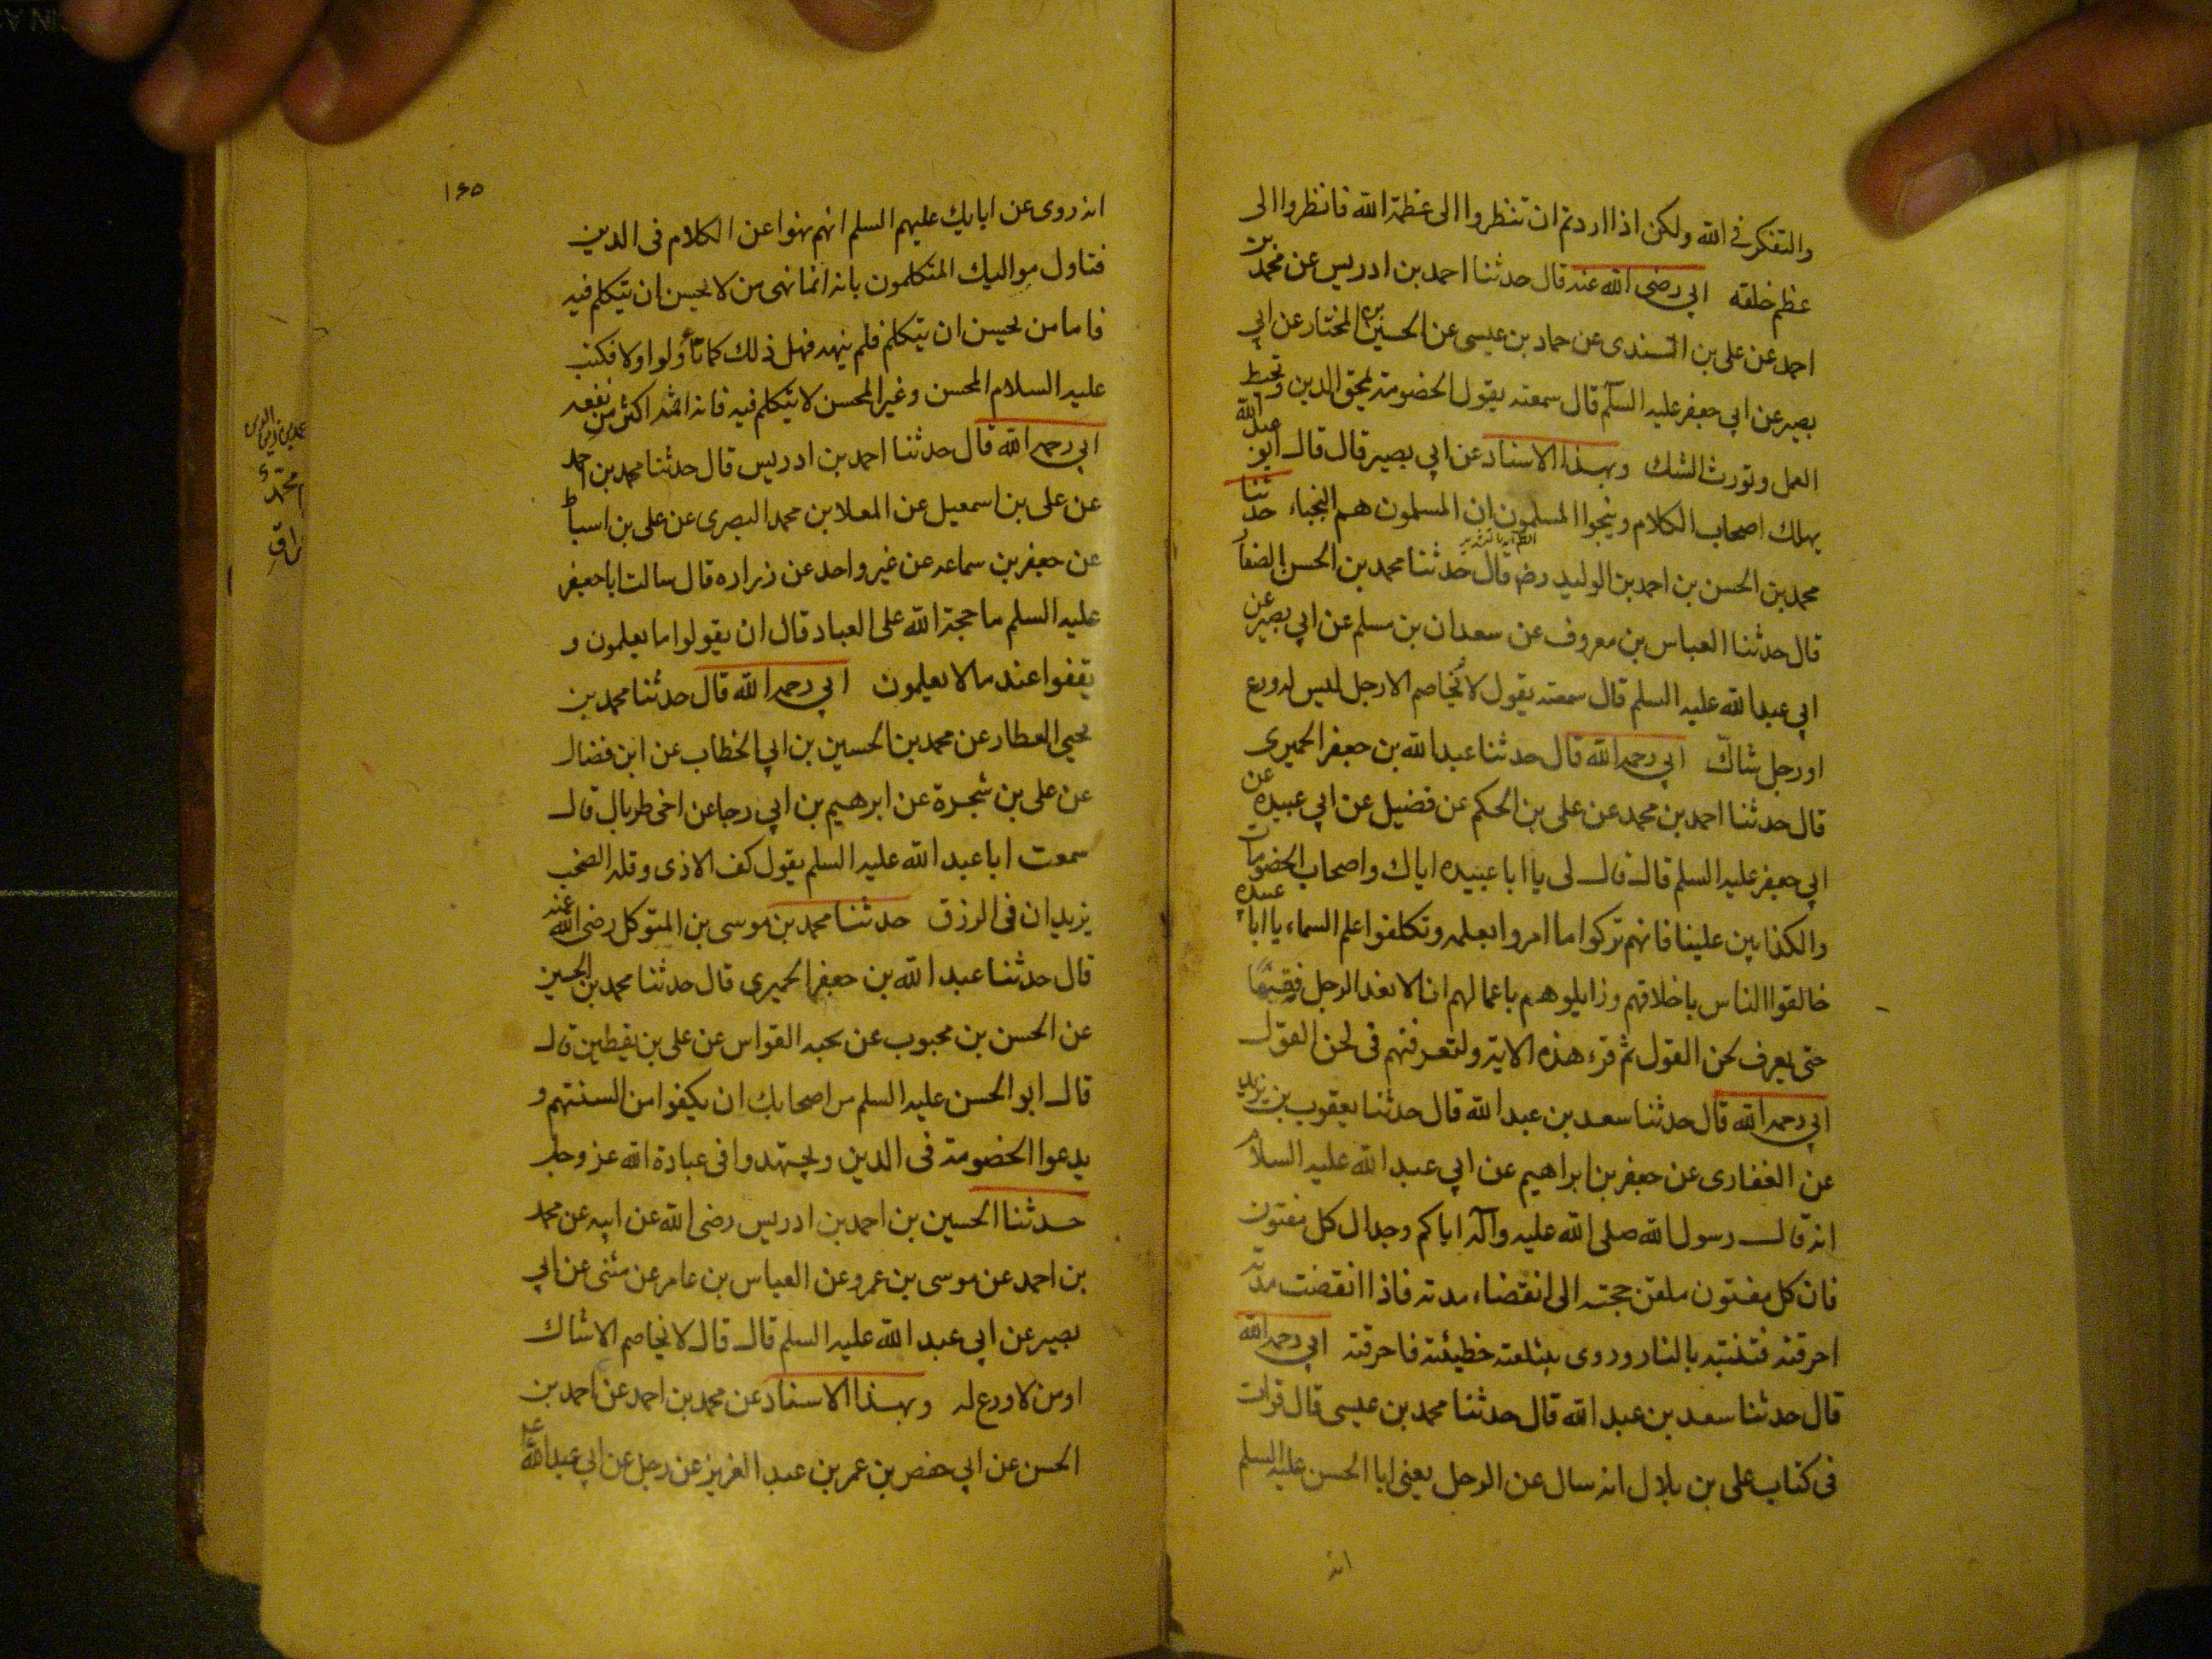 والتفكر في الله ولكن اذا اردتم ان تنظروا الى عظمة الله فانظروا الى
عظم خلقه ابي رضى الله عنه قال حدثنا احمد بن ادريس عن محمد بن
احمد عن على بن السندى عن حماد بن عيسى عن الحسين بن المختار عن ابي
بصير عن ابي جعفر عليه السلم قال سمعته يقول الخصومة تمحق الدين وتحبط
العمل وتورث الشك وبهذا الاسناد عن ابي بصير قال قال ابو عبد الله
يهلك اصحاب الكلام وينجوا المسلمون ان المسلمون هم النجباء حدثنا
محمد بن الحسن بن احمد بن الوليد رض قال حدثنا محمد بن الحسن الصفار
قال حدثنا العباس بن معروف عن سعدان بن مسلم عن ابي بصير عن
ابي عبد الله عليه السلم قال سمعته يقول لا يخاصم الا رجل ليس له ورع
او رجل شاك ابي رحمه الله قال حدثنا عبد الله بن جعفر الحميرى
قال حدثنا احمد بن محمد عن على بن الحكم عن فضيل عن ابي عبيده عن
ابي جعفر عليه السلم قال قال لى يا ابا عبيده اياك واصحاب الخصومات
والكذابين علينا فانهم تركوا ما امروا بعلمه وتكلفوا علم السماء يا ابا عبيده
خالقوا الناس باخلاقهم وزايلوهم باعمالهم انا لا نعد الرجل فقيها
حتى يعرف لحن القول ثم قرء هذه الاية ولتعرفنهم فى لحن القول
ابي رحمه الله قال حدثنا سعد بن عبد الله قال حدثنا يعقوب بن يزيد
عن الغفارى عن جعفر بن ابراهيم عن ابي عبد الله عليه السلام
انه قال رسول الله صلى الله عليه وآله اياكم وجدال كل مفتون
فان كل مفتون ملقن حجته الى انقضاء مدته فاذا انقضت مدته
احرقته فتنته بالنار وروى شغلته خطيئته فاحرقته ابي رحمه الله
قال حدثنا سعد بن عبد الله قال حدثنا محمد بن عيسى قال قرات
فى كتاب على بن بلال انه سال عن الرجل يعنى ابا الحسن عليه السلم
انه
١٤٥
انه روى عن ابايك عليهم السلم انهم نهوا عن الكلام فى الدين
فتاول مواليك المتكلمون بانه انما نهى من لا يحسن ان يتكلم فيه
فاما من يحسن ان يتكلم فلم ينهه فهل ذلك كما تأولوا او لا فكتب
عليه السلام المحسن وغير المحسن لا يتكلم فيه فان اثمه اكثر من نفعه
ابي رحمه الله قال حدثنا احمد بن ادريس قال حدثنا محمد بن احمد
عن على بن اسمعيل عن المعلا بن محمد البصرى عن على بن اسباط
عن جعفر بن سماعه عن غير واحد عن زراره قال سالت ابا جعفر
عليه السلم ما حجة الله على العباد قال ان يقولوا ما يعلمون و
يقفوا عند ما لا يعلمون ابي رحمه الله قال حدثنا محمد بن
يحيى العطار عن محمد بن الحسين بن ابي الخطاب عن ابن فضال
عن على بن شجرة عن ابرهيم بن ابي رجا عن اخى طربال قال
سمعت ابا عبد الله عليه السلم يقول كف الاذى وقلة الصخب
يزيدان فى الرزق حدثنا محمد بن موسى بن المتوكل رضى الله عنه
قال حدثنا عبد الله بن جعفر الحميرى قال حدثنا محمد بن الحسين
عن الحسن بن محبوب عن نجيه القواس عن على بن يقطين قال
قال ابو الحسن عليه السلم مر اصحابك ان يكفوا من السنتهم و
يدعوا الخصومة فى الدين ويجتهدوا فى عبادة الله عز وجل
حدثنا الحسين بن احمد بن ادريس رضى الله عن ابيه عن محمد
بن احمد عن موسى بن عمرو عن العباس بن عامر عن مثنى عن ابي
بصير عن ابي عبد الله عليه السلم قال قال لا يخاصم الا شاك
او من لا ورع له وبهذا الاسناد عن محمد بن احمد عن احمد بن
الحسن عن ابي حفص بن عمر بن عبد العزيز عن رجل عن ابي عبد الله